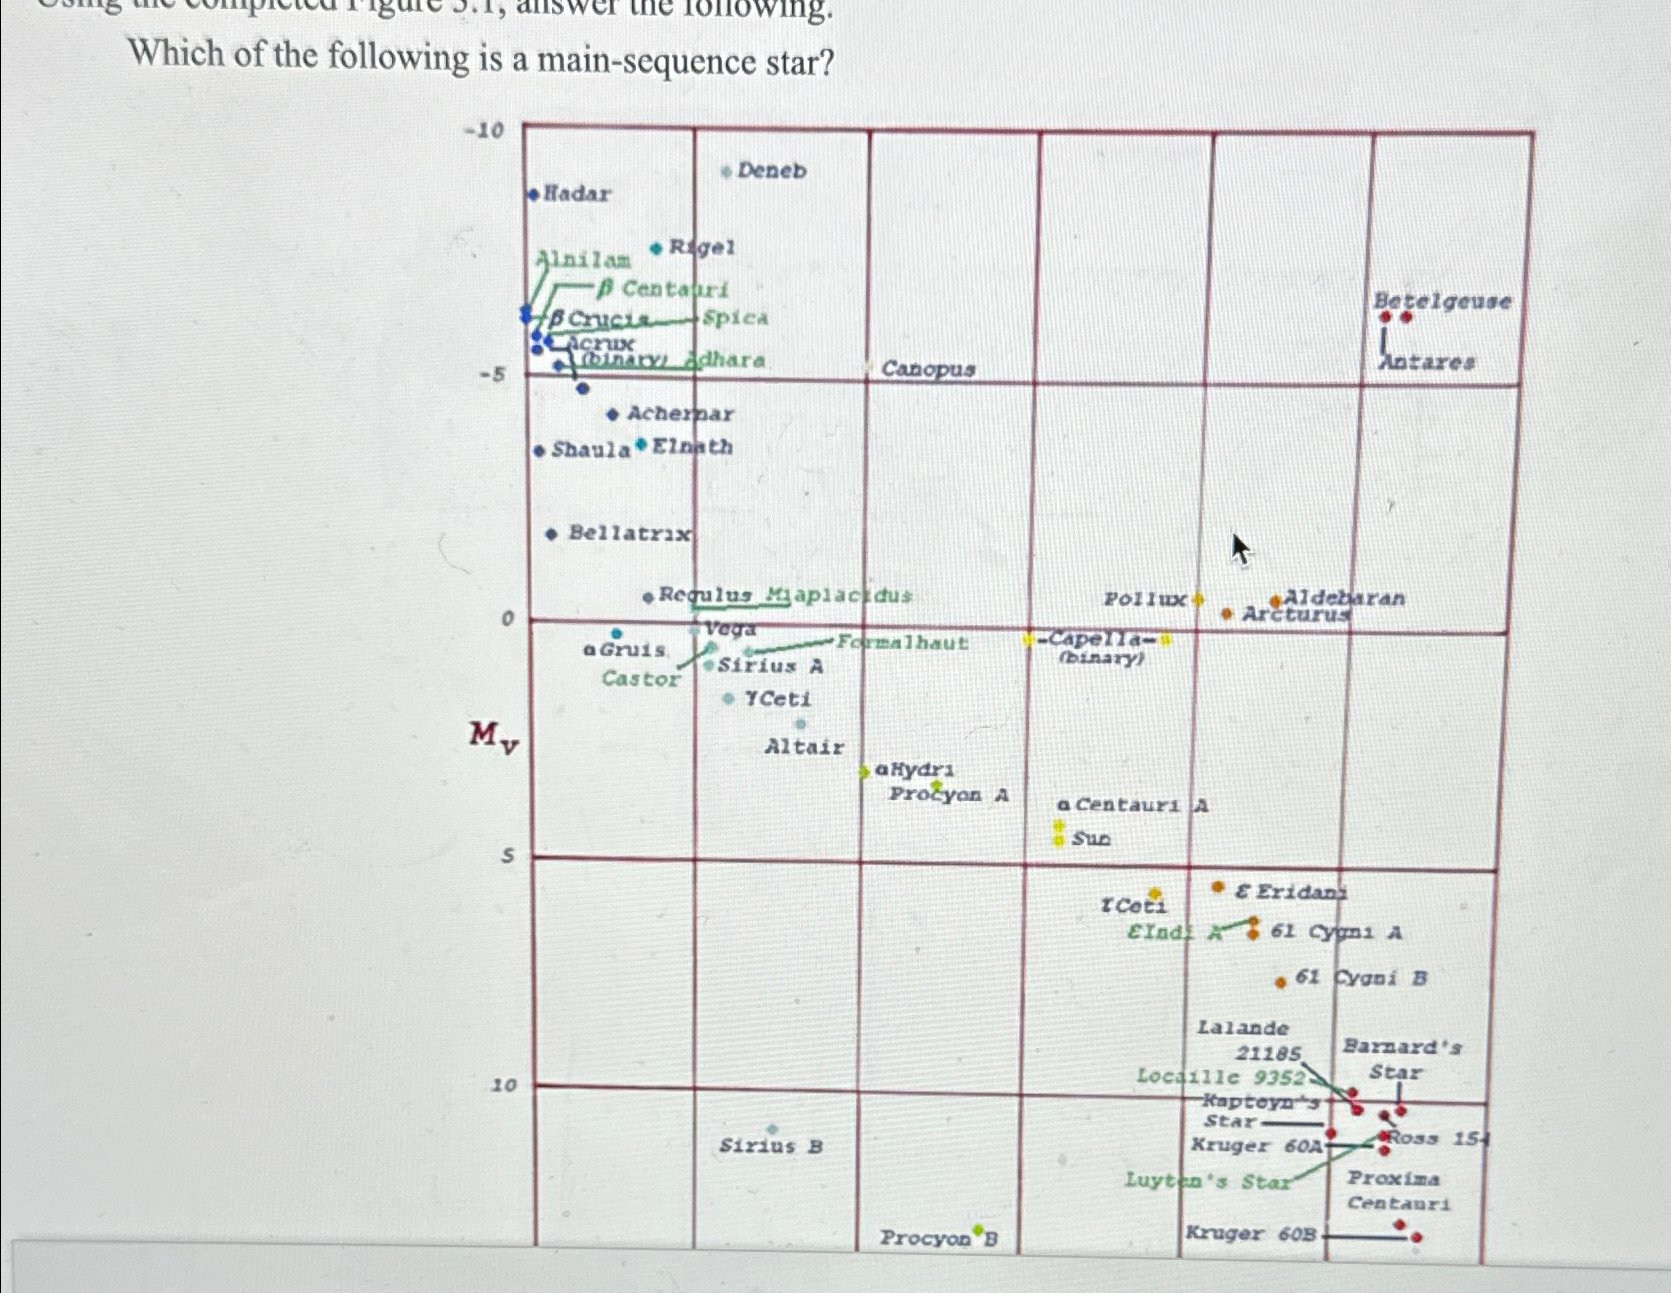 Using the completed Figure 3.1, answer the following.
Which of the following is a main-sequence star?
-10
Deneb
Hadar
Rigel
Alnilam
β Centauri
Betelgeuse
β Crucis
Spica
Acrux
(binary)
Adhara
Canopus
Antares
-5
Achernar
Shaula
Elnath
Bellatrix
Regulus
Miaplacidus
Pollux
Aldebaran
Arcturus
0
Vega
Formalhaut
-Capella-
(binary)
αGruis
Sirius A
Castor
γCeti
Mv
Altair
αHydri
Procyon A
α Centauri A
Sun
5
ε Eridani
τCeti
εIndi A
61 Cygni A
61 Cygni B
Lalande
21185
Barnard's
Star
Locaille 9352
10
Kapteyn's
Star
Sirius B
Kruger 60A
Ross 154
Luyten's Star
Proxima
Centauri
Procyon B
Kruger 60B